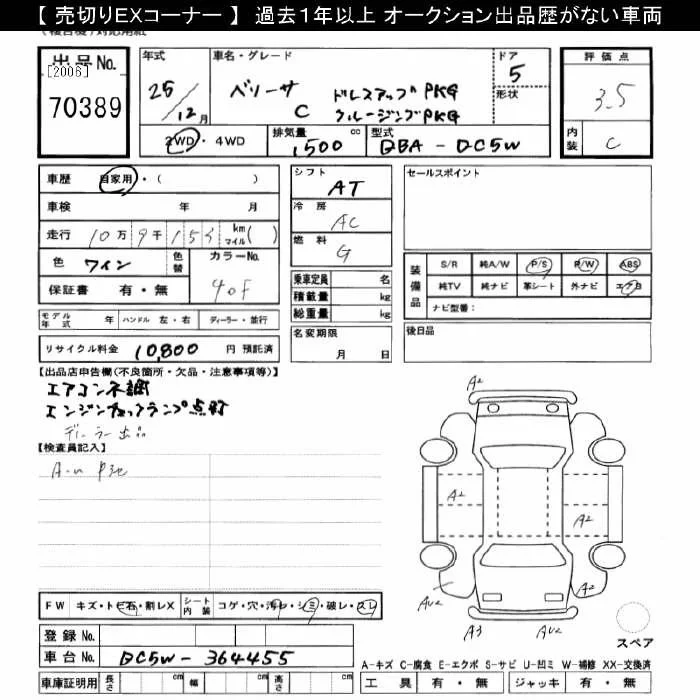 【 売切りEXコーナー 】 過去1年以上 オークション出品歴がない車両
出品No.
[2006]
70389
年式
25/12月
車名・グレード
ベリーサ C ドレスアップPKG
クルージングPKG
ドア 5
形状
評価点
3.5
内装 C
2WD・4WD
排気量 1,500 cc
型式 DBA - DC5W
車歴 自家用・( )
車検 年 月
走行 10万 9千 153 km マイル( )
色 ワイン 色替
カラーNo. 40F
保証書 有・無
シフト AT
冷房 AC
燃料 G
乗車定員 名
積載量 kg
総重量 kg
セールスポイント
装備品
S/R 純A/W P/S P/W ABS
純TV 純ナビ 革シート 外ナビ エアB
ナビ型番:
モデル年式 年 ハンドル 左・右 ディーラー・並行
名変期限 月 日
後日品
リサイクル料金 10,800 円 預託済
【出品店申告欄(不良箇所・欠品・注意事項等)】
エアコン不調
エンジンチェックランプ点灯
ディーラー出品
【検査員記入】
A-u
A2
A2
A2
AU2
AU2
A3
AU2
スペア
FW キズ・トビ石・割レX シート内装 コゲ・穴・汚レ・シミ・破レ・スレ
登録No.
車台No. DC5W-364455
車庫証明用 長さ cm 幅 cm 高さ cm
A-キズ C-腐食 E-エクボ S-サビ U-凹ミ W-補修 XX-交換済
工具 有・無 ジャッキ 有・無